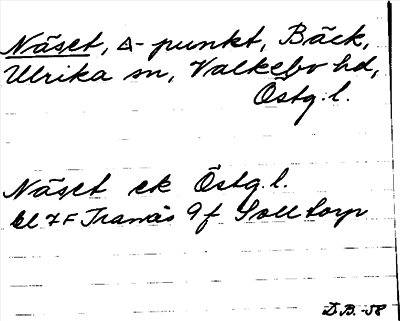 Näset, △-punkt, Bäck,
Ulrika sn, Valkebo hd,
Östg.l.
Näset ek Östg.l.
bl 7F Tranås 9f Solltorp
D.B.-58